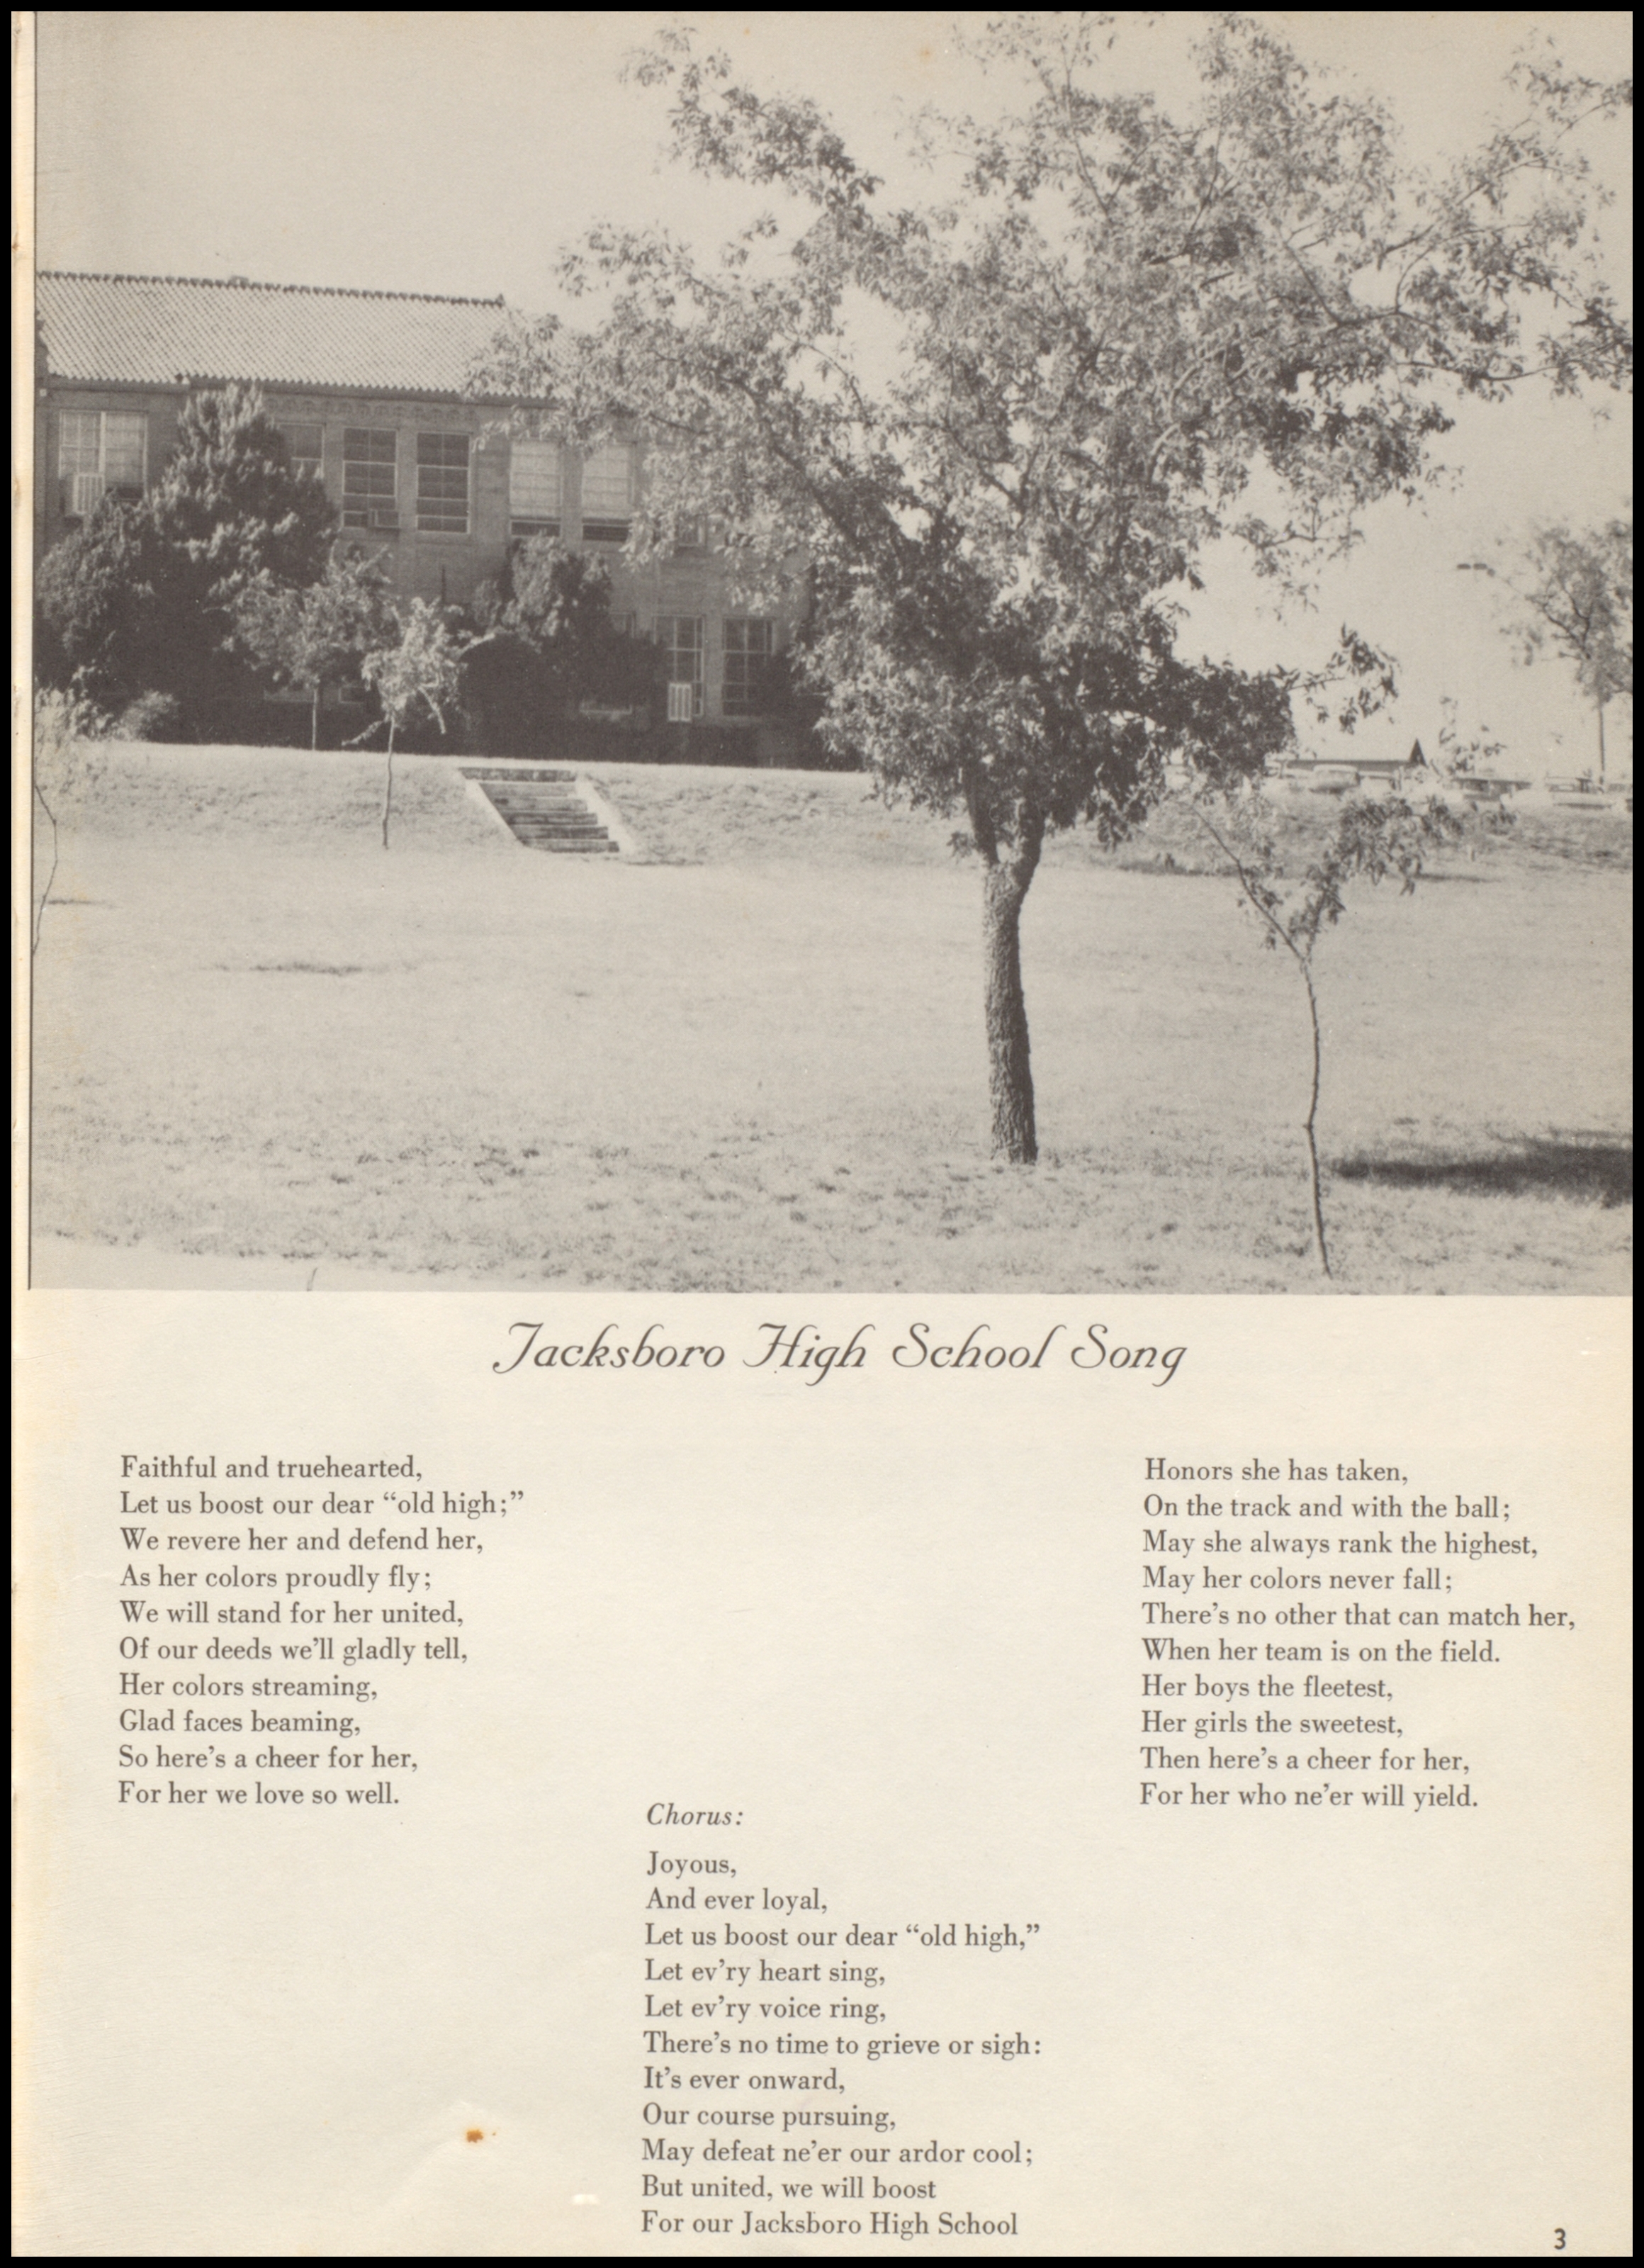 Jacksboro High School Song
Faithful and truehearted,
Let us boost our dear “old high;”
We revere her and defend her,
As her colors proudly fly;
We will stand for her united,
Of our deeds we’ll gladly tell,
Her colors streaming,
Glad faces beaming,
So here’s a cheer for her,
For her we love so well.
Honors she has taken,
On the track and with the ball;
May she always rank the highest,
May her colors never fall;
There’s no other that can match her,
When her team is on the field.
Her boys the fleetest,
Her girls the sweetest,
Then here’s a cheer for her,
For her who ne’er will yield.
Chorus:
Joyous,
And ever loyal,
Let us boost our dear “old high,”
Let ev’ry heart sing,
Let ev’ry voice ring,
There’s no time to grieve or sigh:
It’s ever onward,
Our course pursuing,
May defeat ne’er our ardor cool;
But united, we will boost
For our Jacksboro High School
3